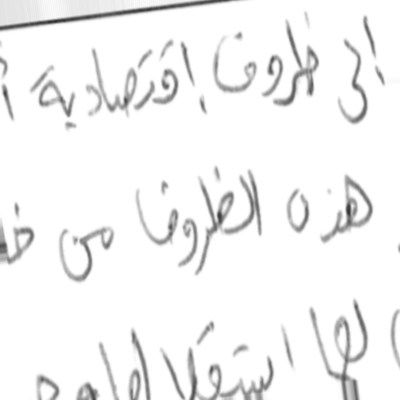 إلى ظروف إقتصادية
هذه الظروف من
لها استغلا